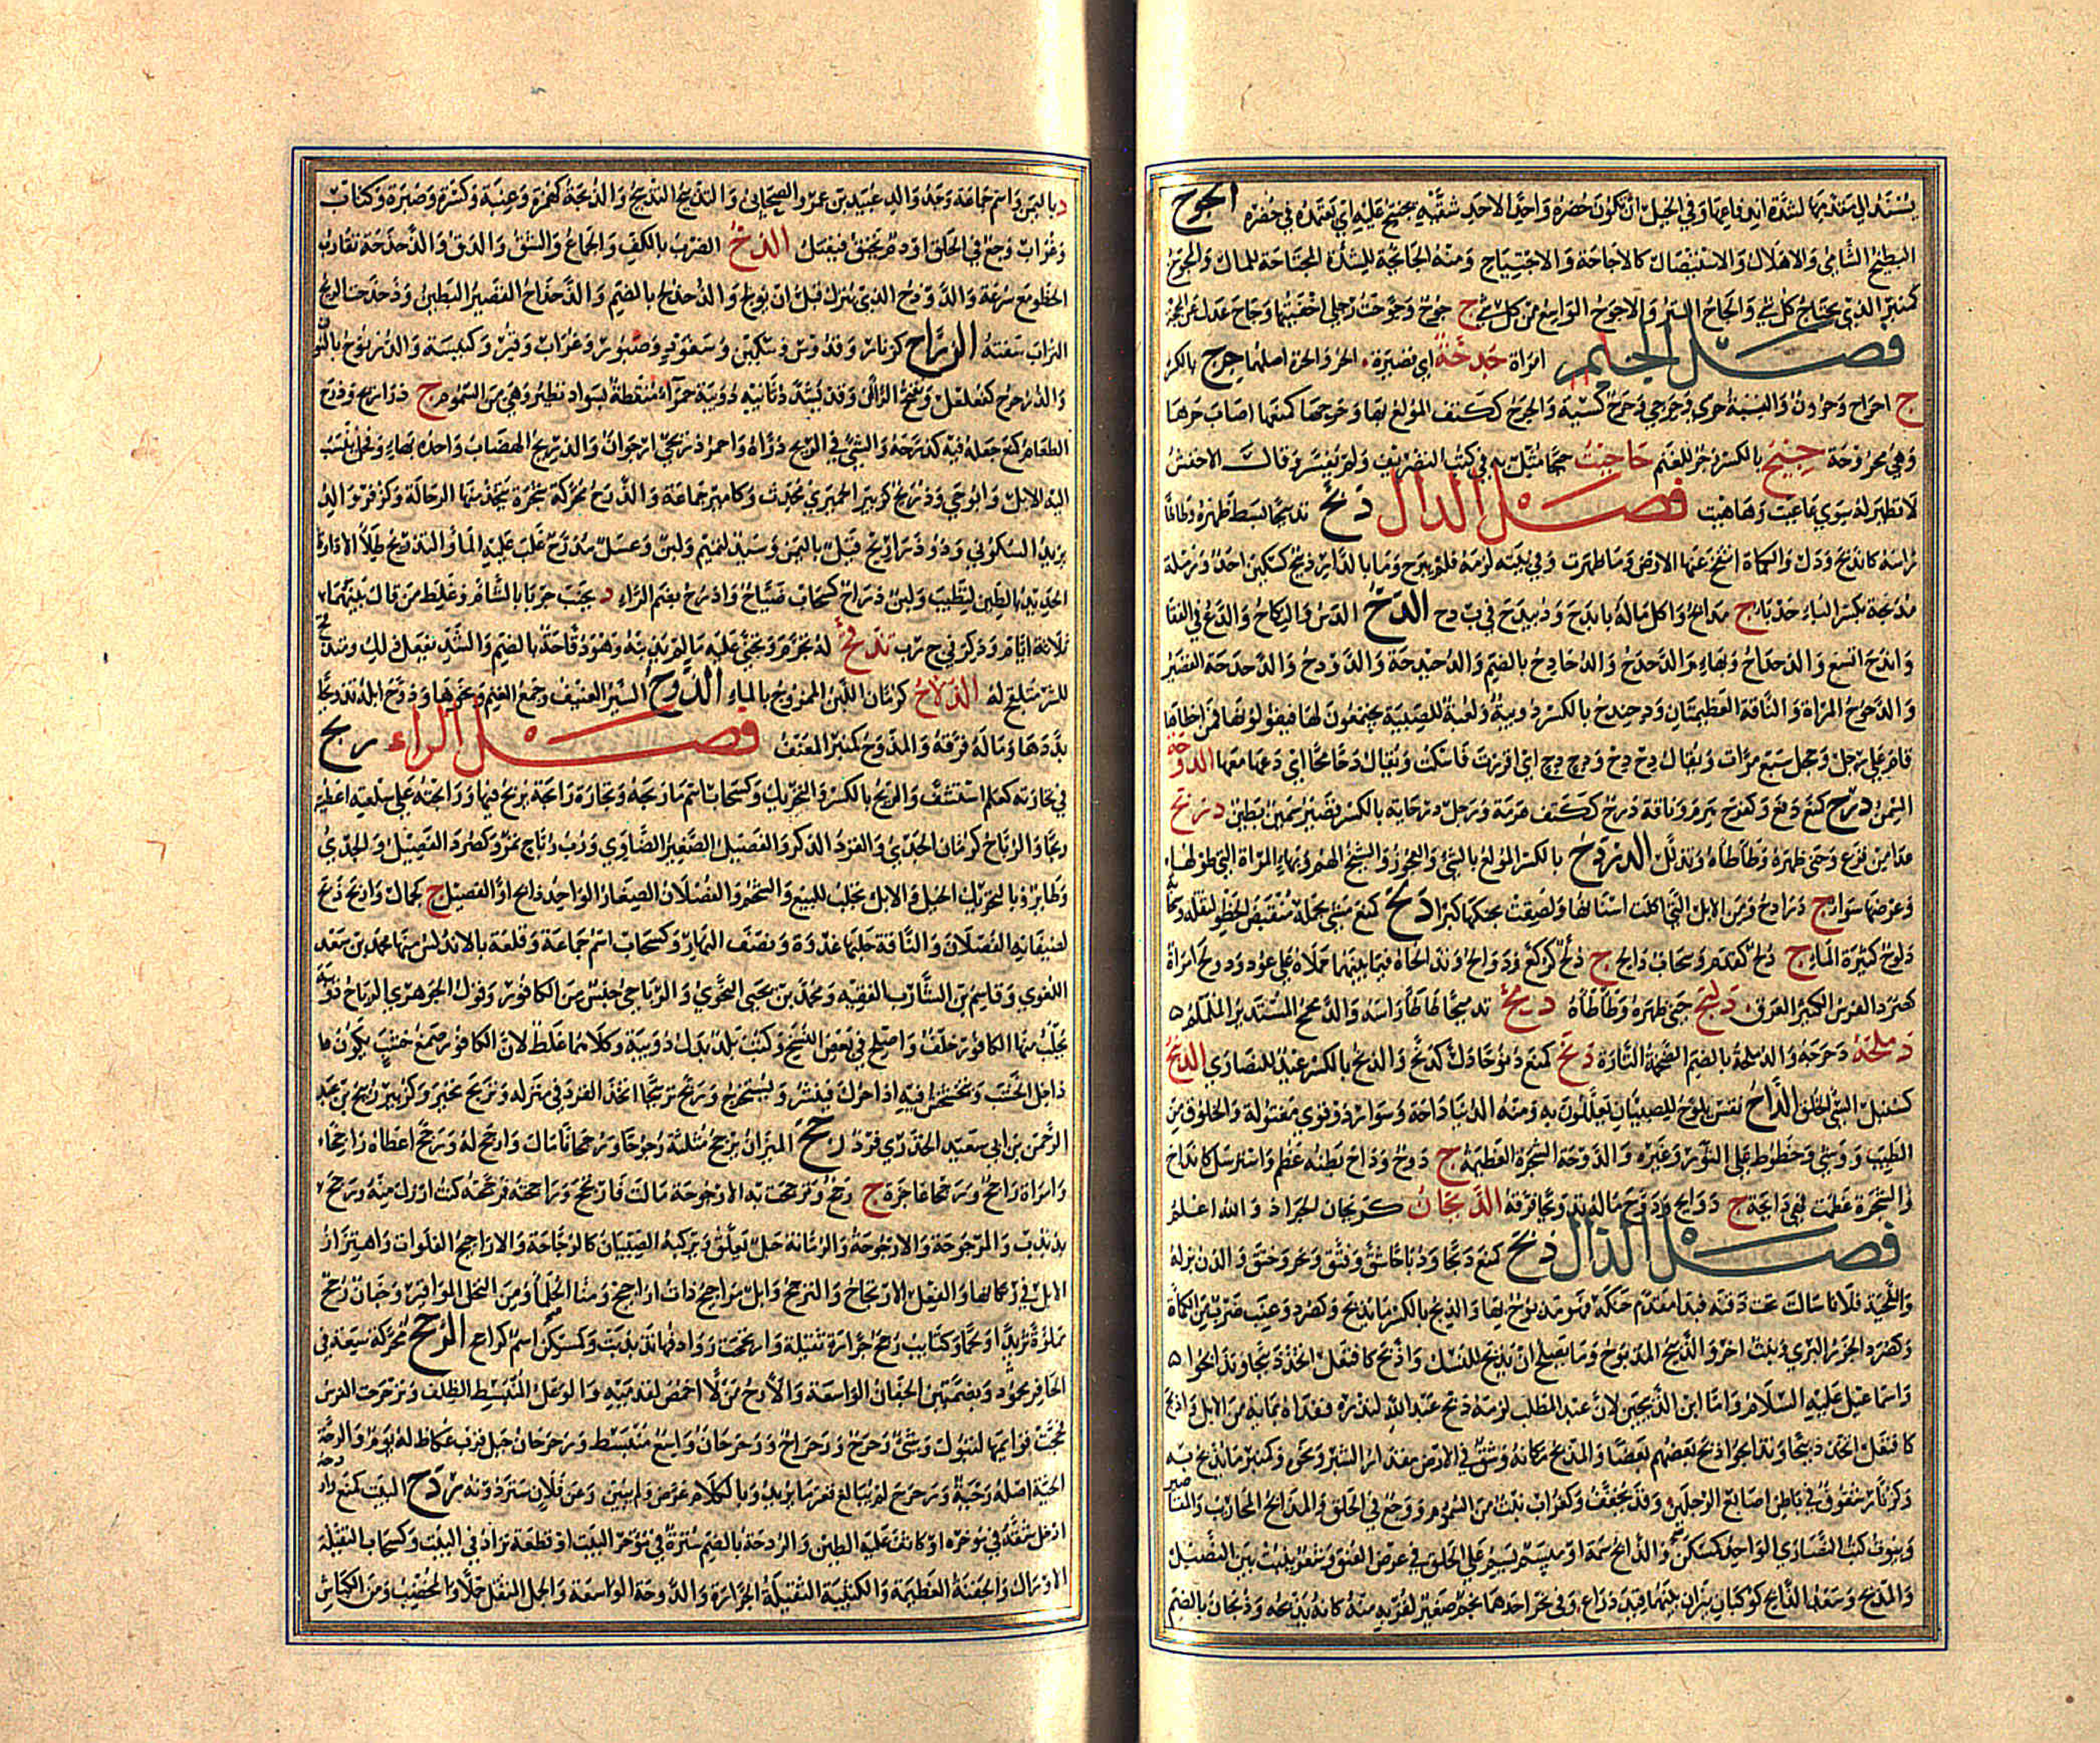 يستند الى مقدمها لشدة اندفاعها وفي الحبل ان تكون حضره واحد الاحد شقيه يجتنح عليه اي يعتمده في حضره الجوح
البطيخ الشامي والاهلاك والاستئصال كالاجاحة والاجتياح ومنه الجائحة للشدة المجتاحة للمال والمجوح
كمنبر الذي يجتاح كل شيء والجاح الستر والاجوح الواسع من كل شيء ج جوح وجوحت رجلي احفيتها وجاح عدل عن المحجة
فصل الحاء امراة حدحة اي قصيرة الحر والحرة اصلهما حرح بالكسر
ج احراح وحرون والنسبة حري وحرحي وحرح كسته والحرح ككتف المولع بها وحرحها كمنعها اصاب حرها
وهي محروحة حنح بالكسر زجر للغنم حاحيت حيحاء مثل به في كتب التصريف ولم يفسر وقال الاخفش
لا نظير له سوى عاعيت وهاهيت فصل الدال دبح تدبيحا بسط ظهره وطاطا
راسه كاندبح وذل والكماة انتفخ عنها الارض وما ظهرت وفي بيته لزمه فلم يبرح وما بالدار دبيح كسكين احد ورملة
مدبحة بكسر الباء حدباء ج مدابح واكل ماله بابدح ودبيدح في ب د ح الدح الدس والنكاح والدع في القفا
واندح اتسع والدحداح وبهاء والدحدح والدحادح بالضم والدحيدحة والدودح والدحدحة القصير
والدحوح المراة والناقة العظيمتان ودحندح بالكسر دويبة ولعبة للصبية يجتمعون لها فيقولونها فمن اخطاها
قام على رجل وحجل سبع مرات ويقال دح دح ودح دح اي اقررت فاسكت ويقال دحا محا اي دعها معها الدوحة
السمن درح كمنع دفع وكفرح هرم وناقة درح ككتف هرمة ورجل درحاية بالكسر قصير سمين بطين دربح
عدا من فزع وحنى ظهره وطاطاه وتذلل الدردح بالكسر المولع بالشيء والعجوز والشيخ الهم وبهاء المراة التي طولها
وعرضها سواء ج درادح ومن الابل التي اكلت اسنانها ولصقت بحنكها كبرا دلح كمنع مشى بحمله منقبض الخطو لثقله وسحابة
دلوح كثيرة الماء ج دلح كقدم وسحاب دالح ج دلح كركع ودوالح وتدالحاه فيما بينهما حملاه على عود ودولح امراة
كصرد الفرس الكثير العرق دلبح حنى ظهره وطاطاه دمح تدميحا طاطا راسه والدمحمح المستدير الململم
دملحة دحرجه والدملحة بالضم الضخمة التارة دنح كمنع دنوحا ذل كدنح والدنح بالكسر عيد للنصارى الدنبح
كسنبل السيئ الخلق الداح نقش يلوح للصبيان يعللون به ومنه الدنيا داحة وسوار ذو قوى مفتولة والخلوق من
الطيب ووشي وخطوط على الثور وغيره والدوحة الشجرة العظيمة ج دوح وداح بطنه عظم واسترسل كانداح
والشجرة عظمت فهي دائحة ج دوائح ودوح ماله تدويحا فرقه الديحان كريحان الجراد والله اعلم
فصل الذال ذبح كمنع ذبحا وذباحا شق وفتق ونحر وخنق والدن بزله
واللحية فلانا سالت تحت ذقنه فبدا مقدم حنكه فهو مذبوح بها والذبح بالكسر ما يذبح وكصرد وعنب ضرب من الكماة
وكصرد الجزر البري ونبت اخر والذبيح المذبوح وما يصلح ان يذبح للنسك واذبح كافتعل اتخذ ذبيحا وتذابحوا
واسماعيل عليه السلام وانا ابن الذبيحين لان عبد المطلب لزمه ذبح عبد الله لنذره ففداه بمائة من الابل واذبح
كافتعل اتخذ ذبيحا وتذابحوا ذبح بعضهم بعضا والمذبح مكانه وشق في الارض مقدار الشبر ونحوه وكمنبر ما يذبح به
وكزنار شقوق في باطن اصابع الرجلين وقد يخفف وكغراب نبت من السموم ووجع في الحلق والمذابح المحاريب والمقاصير
وبيوت كتب النصارى الواحد كمسكن والذابح سمة او ميسم يسم على الحلق في عرض العنق وشعر ينبت بين النصيل
والمذبح وسعد الذابح كوكبان نيران بينهما قيد ذراع وفي نحر احدهما نجم صغير لقربه منه كانه يذبحه وذبحان بالضم
د باليمن واسم جماعة وجد والد عبيد بن عمرو الصحابي والتذبيح التدبيح والذبحة كهمزة وعنبة وكسرة وصبرة وكتاب
وغراب وجع في الحلق او دم يخنق فيقتل الذح الضرب بالكف والجماع والشق والدق والذحذحة تقارب
الخطو مع سرعة والذوذح الذي ينزل قبل ان يولج والذحذح بالضم والذحذاح القصير البطين وذحذحت الريح
التراب سفته الذراح كزنار وقدوس وسكين وسفود وصبور وغراب وقبر وكنيسة والذرنوح بالنون
والذرحرح كفلفل وتفتح الراان وقد يشدد ثانيه دويبة حمراء منقطة بسواد تطير وهي من السموم ج ذراريح وذرح
الطعام كمنع جعله فيه كذرحه والشيء في الريح ذراه واحمر ذريحي ارجوان والذريح الهضاب واحده بهاء وفحل تنسب
اليه الابل وابو حي وذريح كزبير الحميري محدث وكامير جماعة والذرح محركة شجرة يتخذ منها الرحالة وكزفر والد
يزيد السكوني وذو ذراريح قيل باليمن وسيد لتميم ولبن وعسل مذرح غلب عليه الماء والتذريح طلاء الاداوة
الجديدة بالطين لتطيب ولبن ذراح كسحاب ضياح واذرح بضم الراء د بجنب جربا بالشام وغلط من قال بينهما
ثلاثة ايام وذكر في ج ر ب تذقح له تجرم وتجنى عليه ما لم يذنبه وهو ذقاحة بالضم والشد يفعل ذلك ومتذقح
للشر متلقح له الذلاح كرمان اللبن الممزوج بالماء الذوح السير العنيف وجمع الغنم ونحوها وذوح ابله تذويحا
بددها وماله فرقه والمذوح كمنبر المعنف فصل الراء ربح
في تجارته كعلم استشف والربح بالكسر والتحريك وكسحاب اسم ما ربحه وتجارة رابحة يربح فيها ورابحته على سلعته اعطيته
ربحا والرباح كرمان الجدي والقرد الذكر والفصيل الصغير الضاوي وزب رباح تمر وكصرد الفصيل والجدي
وطائر وبالتحريك الخيل والابل تجلب للبيع والشحم والفصلان الصغار الواحد رابح او الفصيل ج كجمال واربح ذبح
لضيفانه الفصلان والناقة حلبها غدوة ونصف النهار وكسحاب اسم جماعة وقلعة بالاندلس منها محمد بن سعد
اللغوي وقاسم بن الشارب الفقيه ومحمد بن يحيى النحوي والرباحي جنس من الكافور وقول الجوهري الرباح دويبة
يجلب منها الكافور خلف واصلح في بعض النسخ وكتب بلد بدل دويبة وكلاهما غلط لان الكافور صمغ خشب يكون ما
داخل الخشب ويتخشخش فيه اذا حرك فينشر ويستخرج وربح تربيحا اتخذ القرد في منزله وتربح تحير وكزبير ربيح بن عبد
الرحمن بن ابي سعيد الخدري فرد رجح الميزان يرجح مثلثة رجوحا ورجحانا مال وارجح له ورجح اعطاه راجحا
وامراة راجح ورجاح عجزاء ج رجح وترجحت به الارجوحة مالت فارتجح وراجحته فرجحته كنت ارزن منه وترجح
تذبذب والمرجوحة والارجوحة والرمانة حبل يعلق ويركبه الصبيان كالرجاحة والاراجيح الفلوات واهتزاز
الابل في رتكانها والفعل الارتجاح والترجح وابل مراجيح ذات اراجيح ومنا الحلماء ومن النخل المواقير وجفان رجح
مملوة ثريدا ولحما وكتائب رجح جرارة ثقيلة وارتجحت روادفها تذبذبت وكمسكن اسم كراجح الرحح محركة سعة في
الحافر محمود وبضمتين الجفان الواسعة والارح من لا اخمص لقدميه والوعل المنبسط الظلف وترحرحت الفرس
فحجت قوائمها لتبول وشيء رحرح ورحراح ورحرحان واسع منبسط ورحرحان جبل قرب عكاظ له يوم والرحة
الحية اصله رحية ورحرح لم يبالغ قعر ما يريد وبالكلام عرض ولم يبين وعن فلان ستر دونه ردح البيت كمنع واردحه
ادخل شقة في مؤخره او كاثف عليه الطين والردحة بالضم سترة في مؤخر البيت او قطعة تزاد في البيت وكسحاب الثقيلة
الاوراك والجفنة العظيمة والكتيبة الثقيلة الجرارة والدوحة الواسعة والجمل المثقل حملا والمخصب ومن الكباش